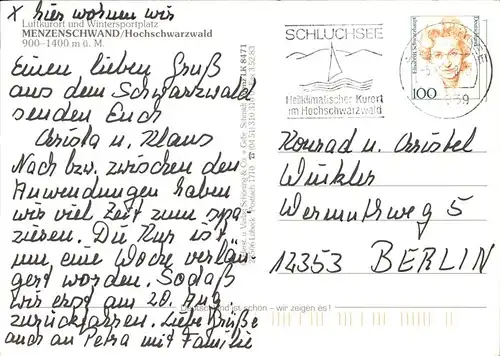 x hier wohnen wir
Luftkurort und Wintersportplatz
MENZENSCHWAND/Hochschwarzwald
900–1400 m ü. M.
Einen lieben Gruß
aus dem Schwarzwald
senden Euch
Christa u. Klaus
Nach bzw. zwischen den
Anwendungen haben
wir viel Zeit zum spa
zieren. Die Kur ist
um eine Woche verlän
gert worden. Sodaß
wir erst am 20. Aug.
zurückfahren. Liebe Grüße
auch an Petra mit Familie
LK 8471
Deutschland ist schön – wir zeigen es!
SCHLUCHSEE
Heilklimatischer Kurort
im Hochschwarzwald
100
Konrad u. Christel
Winkler
Wermuthweg 5
12353 BERLIN